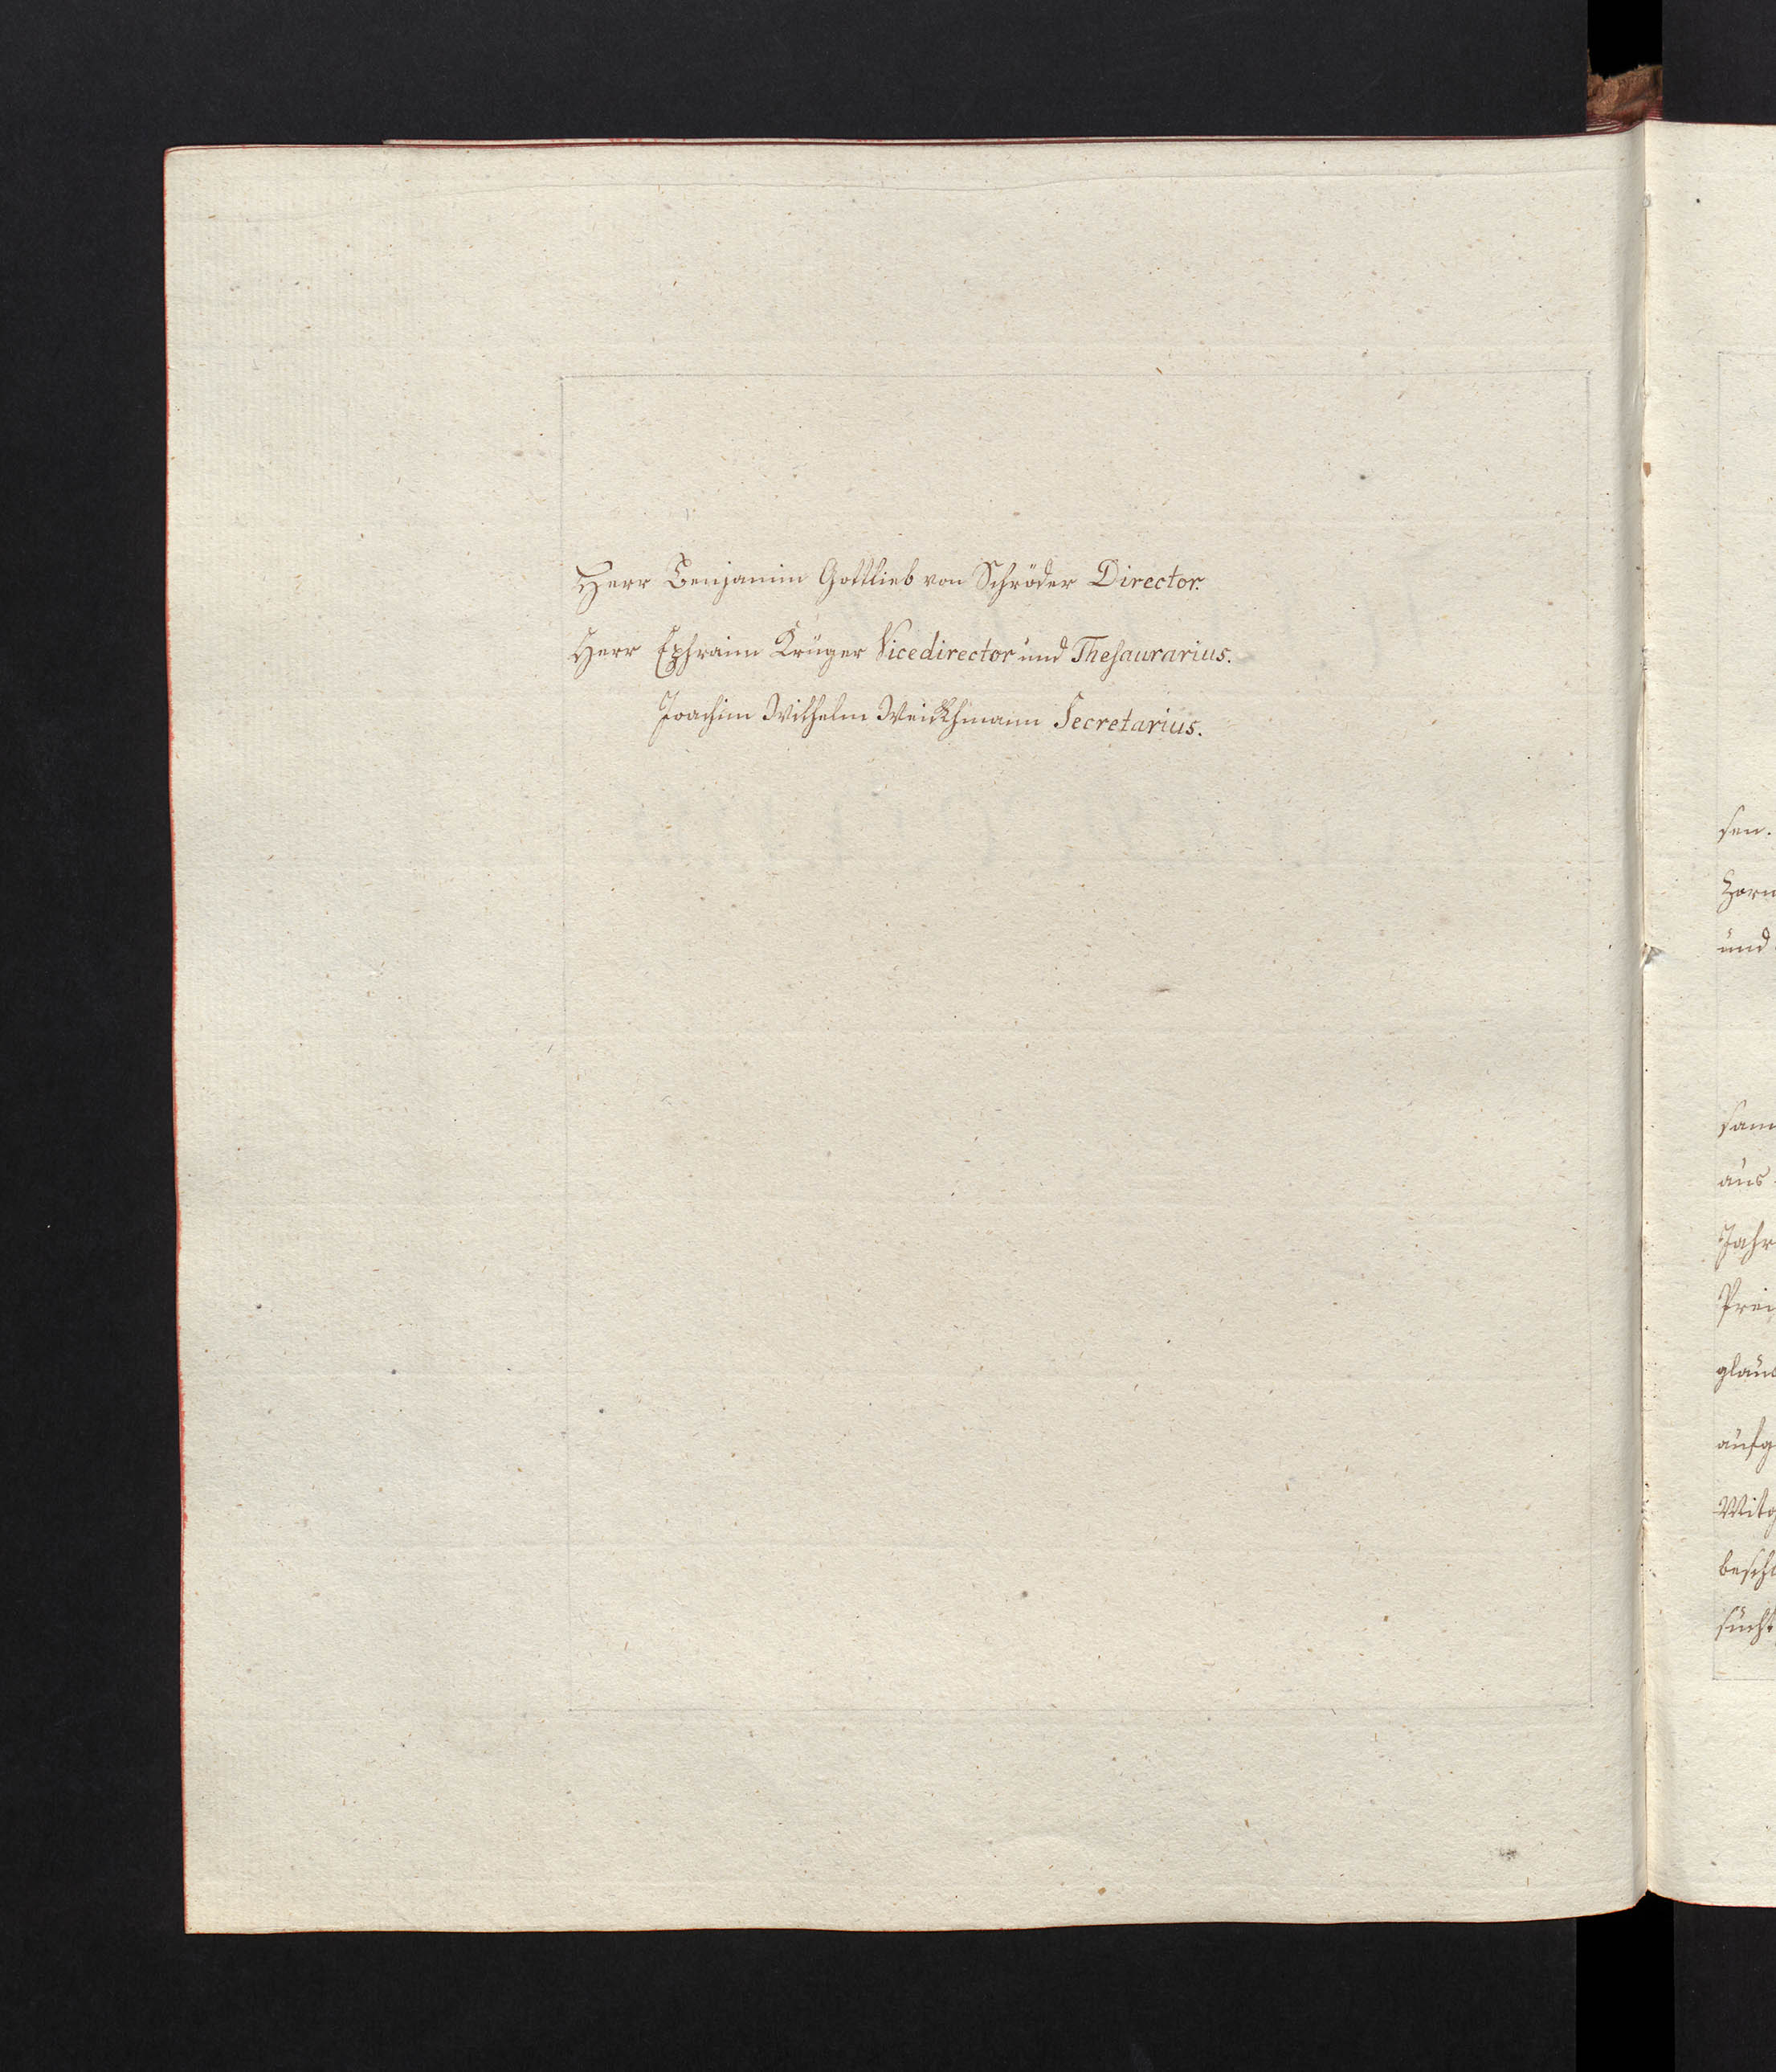 Herr Benjamin Gottlieb von Schröder Director.
Herr Ephraim Krüger Vicedirector und Thesaurarius.
Joachim Wilhelm Weickhmann Secretarius.
sen.
und
sam
aus
Jahr
aufg
besch
sucht